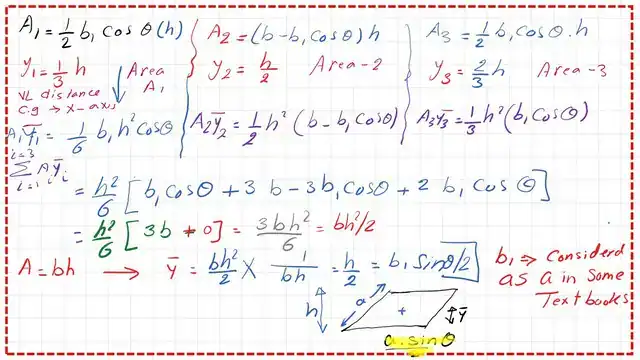 A₁ = 1/2 b₁ cos θ (h)
y₁ = 1/3 h Area A₁
VL distance
C.g → x-axis
A₁ȳ₁ = 1/6 b₁ h² cos θ
A₂ = (b - b₁ cos θ) h
y₂ = h/2 Area-2
A₂ȳ₂ = 1/2 h² (b - b₁ cos θ)
A₃ = 1/2 b₁ cos θ . h
y₃ = 2/3 h Area-3
A₃ȳ₃ = 1/3 h² (b₁ cos θ)
i=3 ∑ i=1 Aᵢ ȳᵢ
= h²/6 [b₁ cos θ + 3b - 3b₁ cos θ + 2 b₁ cos θ]
= h²/6 [3b + 0] = 3bh²/6 = bh²/2
A = bh → ȳ = bh²/2 × 1/bh = h/2 = b₁ sin θ/2
b₁ → Considerd
as a in some
Textbooks
h a + ȳ
a. sin θ